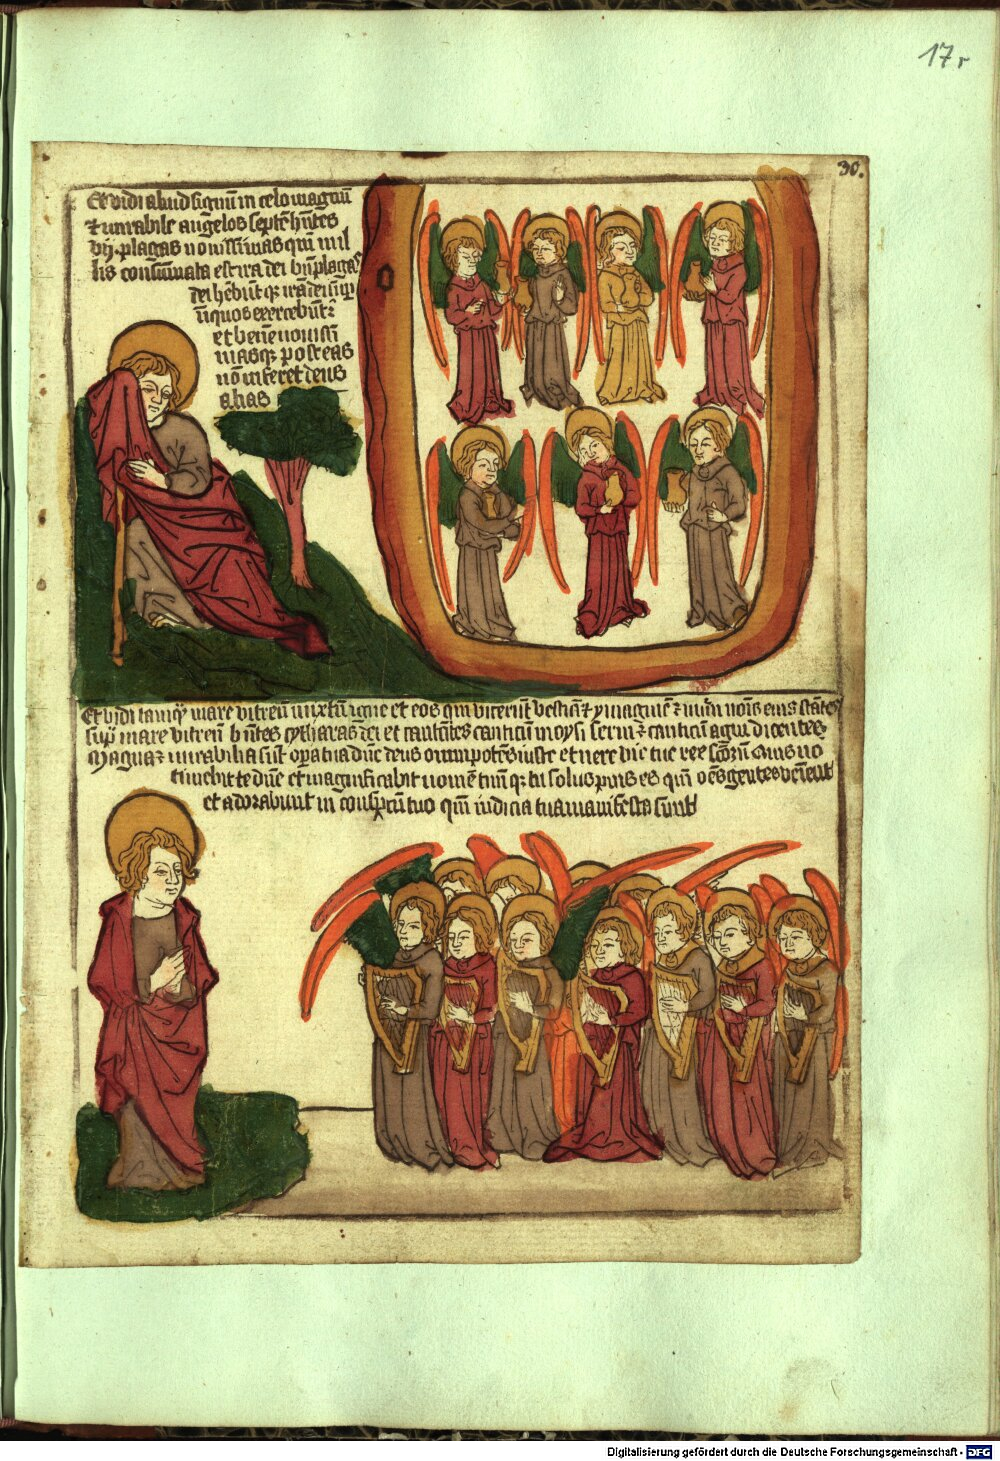 17r
30.
Et vidi aliud signū in celo magnū
⁊ mirabile angelos septē hñtes
vij. plagas novissimas qm̄ in il
lis consūmata est ira dei
et
mas q̄ post eas
nō inferet deus
alias
Et vidi tamq̄ mare vitreū mixtū igne et eos qui vicerūt bestiā ⁊ ymaginē ⁊ nūm nōis eius stātes
sup̄ mare vitreū hñtes cytharas dei et cantātes canticū moysi servi ⁊ canticū agni dicentes
Magna ⁊ mirabilia sūt opera tua dn̄e deus omnipotēs iuste et vere vie tue rex scōrum Quis nō
timebit te dn̄e et magnificabit nomē tuū q̄ tu solus pius es qm̄ oēs gentes venient
et adorabunt in conspectu tuo qm̄ iudicia tua manifesta sunt
Digitalisierung gefördert durch die Deutsche Forschungsgemeinschaft - DFG